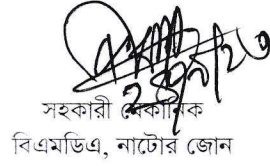 সহকারী মেকানিক
বিএমডিএ, নাটোর জোন